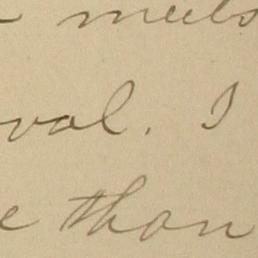 meets
val. I
e than